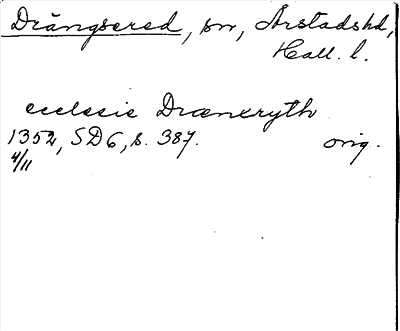 Drängsered, sn, Årstads hd,
Hall. l.
ecclesie Drænxryth
1352, SD 6, s. 387. orig.
4/11